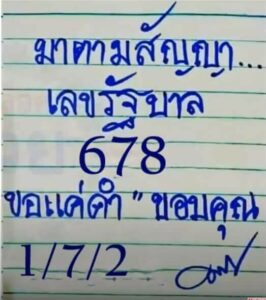 มาตามสัญญา...
เลขรัฐบาล
678
ขอแค่คำ " ขอบคุณ
1/7/2